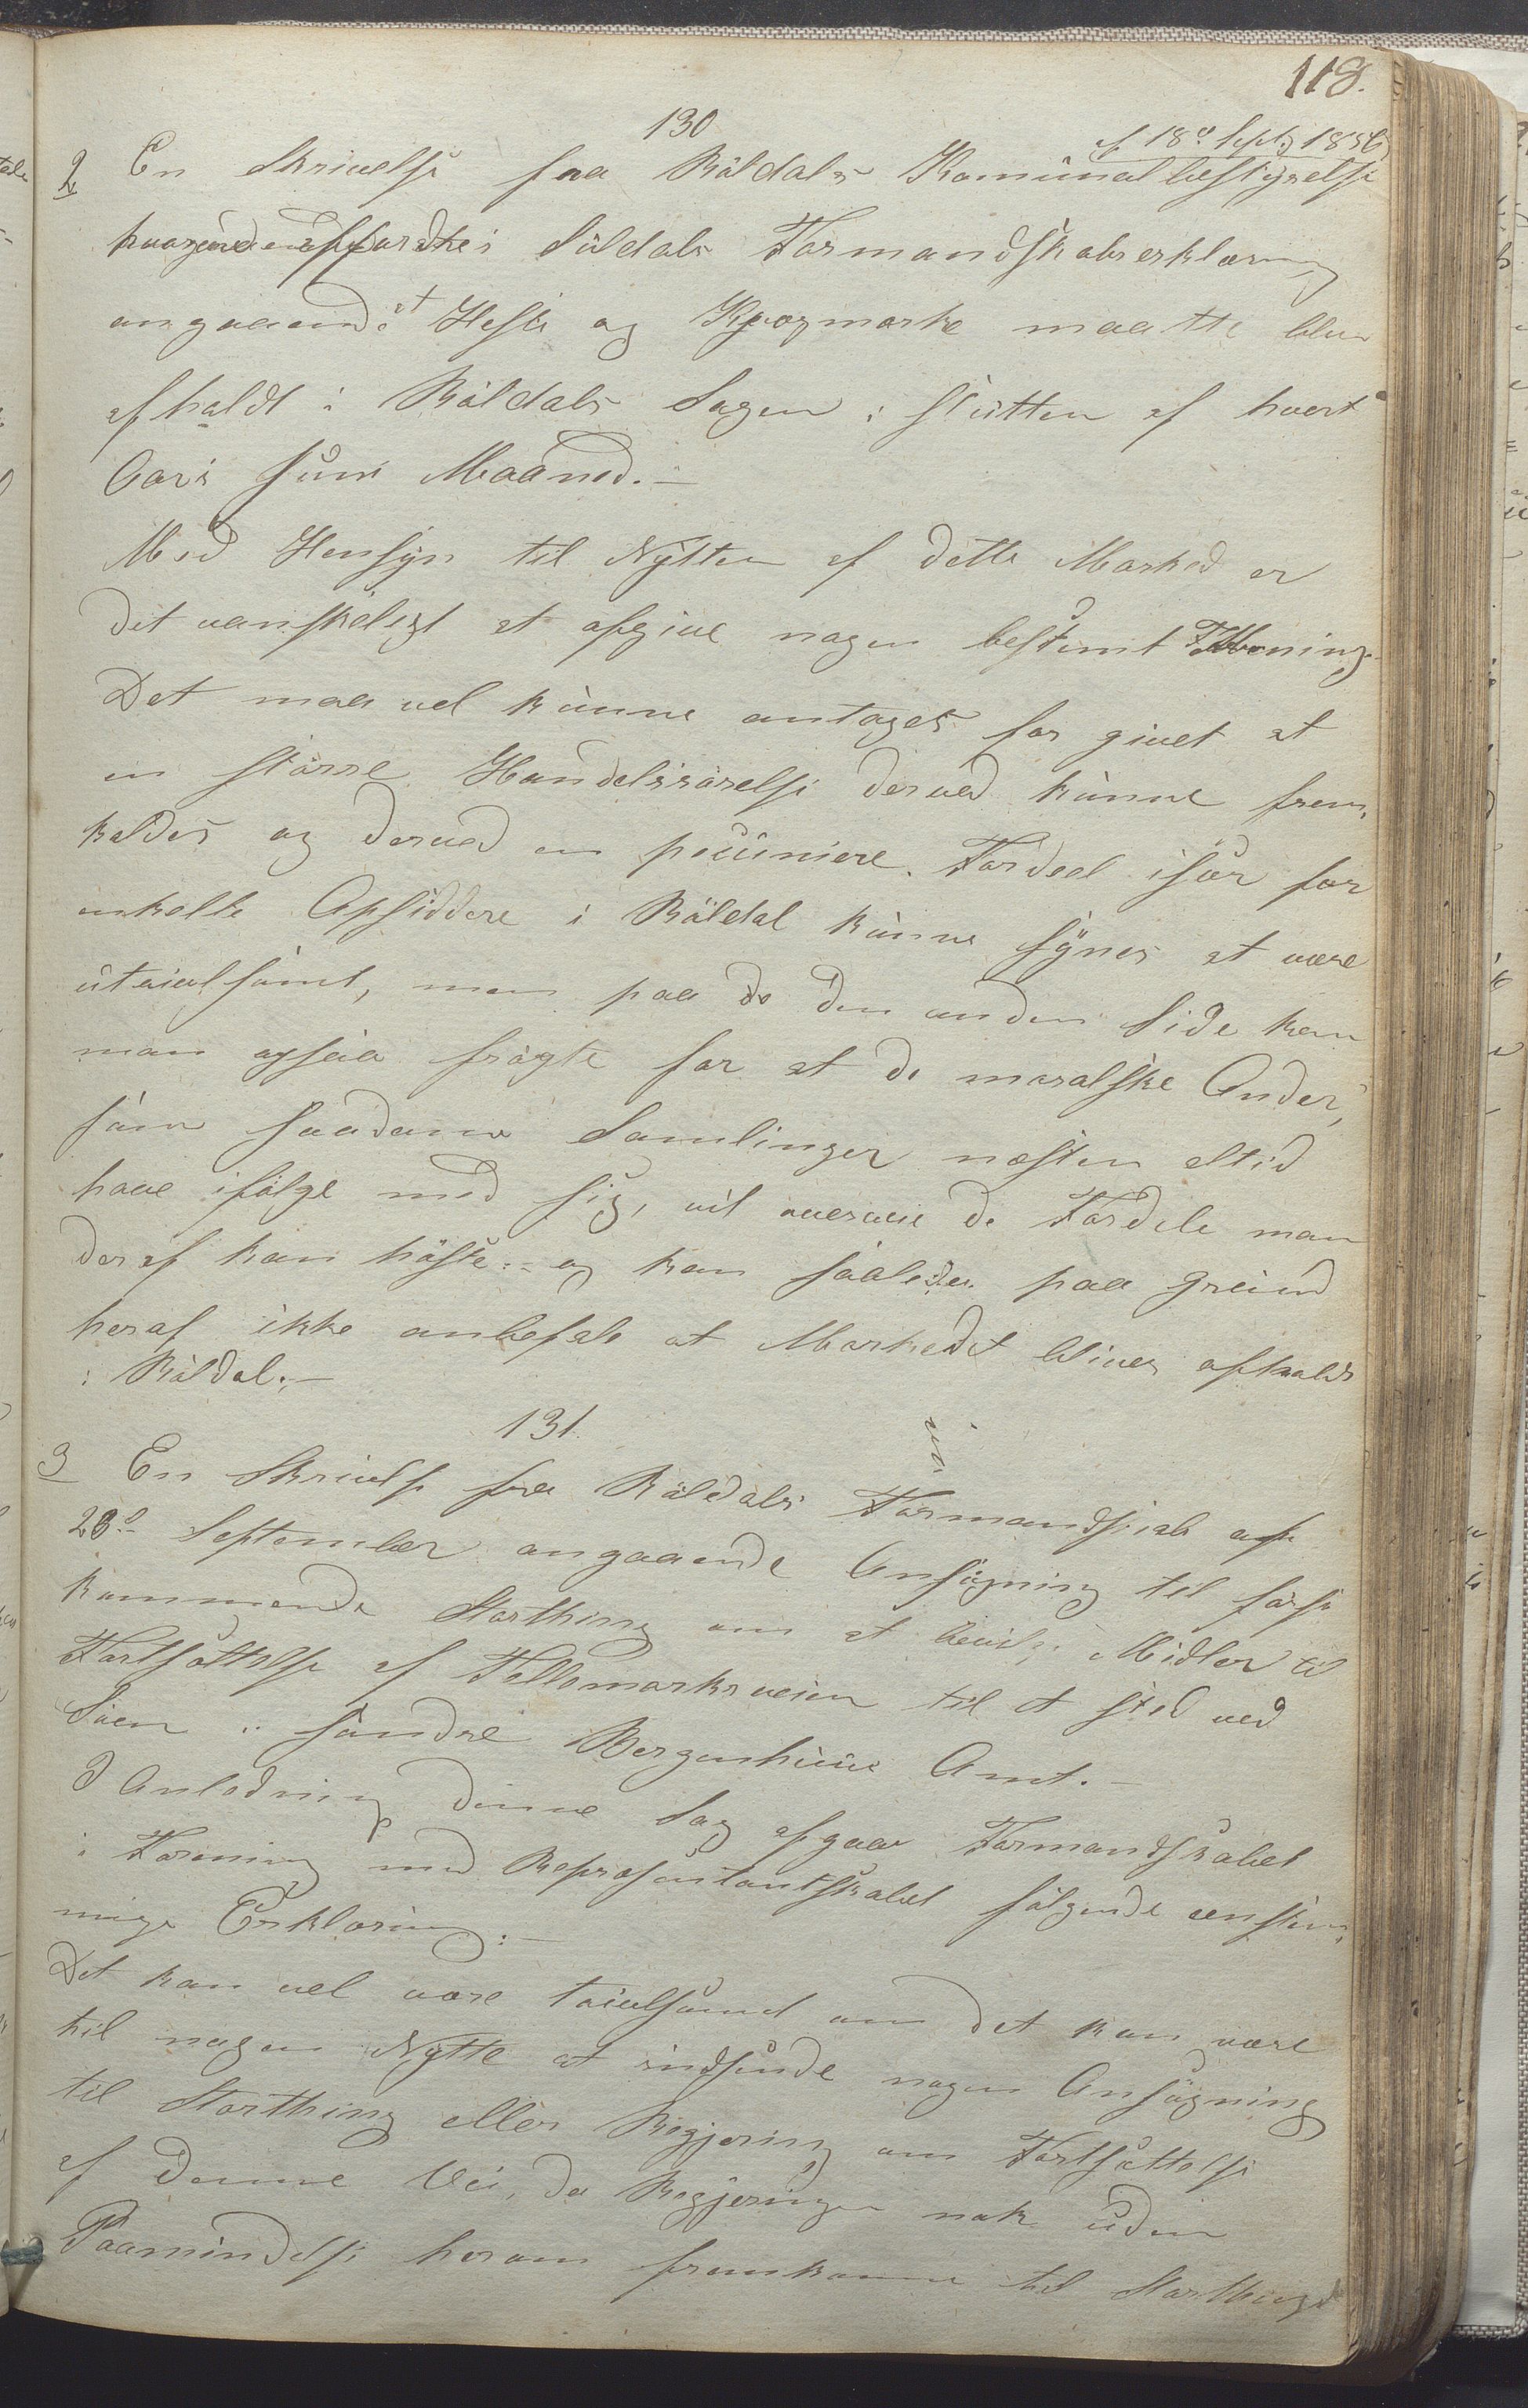 118.
130
af 18d Septbr 1856
2 En Skrivelse fra Röldals Komunalbestyrelse
hvorved æskes Suldals Formandskabs erklæring
angaaende at Heste og Kjvægmarke maatte blive
afholdt i Röldals Sogn i slutten af hvert
Aars Juni Maaned.—
Med Hensyn til Nytten af dette Marked er
det vanskeligt at afgive nogen bestemt Mening.
Det maa vel kunne antages for givet at
en större Handelsrörelse derved kunne frem,
kaldes og derved en pecuniere Fordeel især for
enkelte Opsiddere i Röldal kunne synes at være
utvivlsomt, men paa de den anden Side kan
man ogsaa frygte for at de moralske Onder,
som saadanne Samlinger næsten altid
have ifölge med sig, vil overveie de Fordele man
deraf kan höste.- og kan saaledes paa Grund
heraf ikke anbefale at Markedet bliver afholdt
i Röldal.—
131.
3 En Skrivelse fra Röldals Formandskab af
28d September angaaende Ansögning til först
kommende Storthing om at bevilge Midler til
Fortsættelse af Tellemarksveien til et sted ved
Söen i söndre Bergenhuus Amt.—
I Anledning denne Sag afgav Formandskabet
i Forening med Repræsentantskabet fölgende eenstem,
mige Erklæring:—
Det kan vel være tvivlsomt om det kan være
til nogen Nytte at indsende nogen Ansögning
til Storthing eller Regjering om Fortsættelse
af denne Vei, da Regjeringen nok uden
Paamindelse herom fremkomme til Storthinget